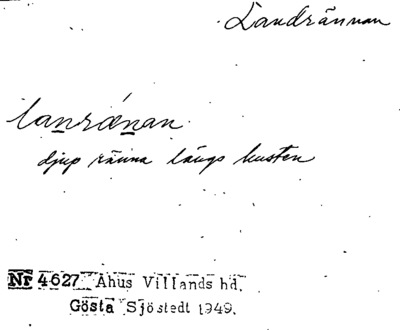 Landrännan
lanrǽnan
djup ränna längs kusten
Nr 4627 Åhus Villands hd.
Gösta Sjöstedt 1949.